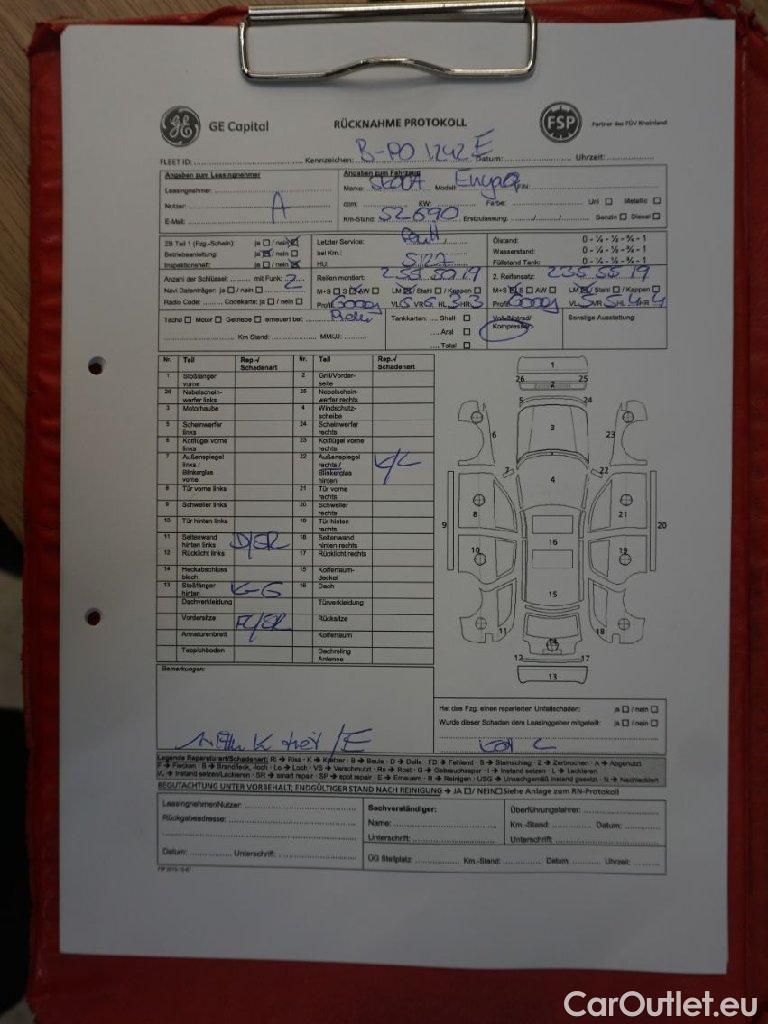 GE Capital
RÜCKNAHME PROTOKOLL
FSP
Partner des TÜV Rheinland
FLEET ID: Kennzeichen: B-PO 1242 E Datum: Uhrzeit:
Angaben zum Leasingnehmer
Angaben zum Fahrzeug
Leasingnehmer:
Marke: SKODA Modell: Enyaq FIN:
Nutzer: A
ccm: KW: Farbe: Uni Metallic
E-Mail:
Km-Stand: 52690 Erstzulassung: Benzin Diesel
ZB Teil 1 (Fzg.-Schein): ja / nein
Letzter Service:
Ölstand: 0 - ¼ - ½ - ¾ - 1
Betriebsanleitung: ja / nein
bei Km.:
Wasserstand: 0 - ¼ - ½ - ¾ - 1
Inspektionsheft: ja / nein
HU:
Füllstand Tank: 0 - ¼ - ½ - ¾ - 1
Anzahl der Schlüssel: mit Funk: 2
Reifen montiert: 235 50 19
2. Reifensatz: 235 55 19
Navi Datenträger: ja / nein
M+S S AW LM Stahl / Kappen
M+S S AW LM Stahl / Kappen
Radio Code: Codekarte: ja / nein
Profil Goody VL 5 VR 5 HL 3 HR 3
Profil Goody VL 5 VR 5 HL 4 HR 4
Tacho Motor Getriebe erneuert bei:
Tankkarten: Shell
Voll-/Notrad/
Sonstige Ausstattung:
Aral
Kompressor
Km Stand: MM/JJ:
Total
Nr. Teil Rep.-/ Schadenart Nr. Teil Rep.-/ Schadenart
1 Stoßfänger vorne
2 Grill/Vorder-seite
26 Nebelschein-werfer links
25 Nebelschein-werfer rechts
3 Motorhaube
4 Windschutz-scheibe
5 Scheinwerfer links
24 Scheinwerfer rechts
6 Kotflügel vorne links
23 Kotflügel vorne rechts
7 Außenspiegel links / Blinkerglas vorne
22 Außenspiegel rechts / Blinkerglas hinten K/L
8 Tür vorne links
21 Tür vorne rechts
9 Schweller links
20 Schweller rechts
10 Tür hinten links
19 Tür hinten rechts
11 Seitenwand hinten links D/SR
18 Seitenwand hinten rechts
12 Rücklicht links
17 Rücklicht rechts
14 Heckabschluss blech
15 Kofferraum-deckel
13 Stoßfänger hinten K-G
16 Dach
Dachverkleidung
Türverkleidung
Vordersitze FL/SR
Rücksitze
Armaturenbrett
Kofferraum
Teppichboden
Dachreling Antenne
1
26 25
2
5 24
3
6 23
7 22
4
8 21
9 20
16
10 19
15
11 18
14
12 17
13
Bemerkungen:
Hat das Fzg. einen reparierten Unfallschaden: ja / nein
Wurde dieser Schaden dem Leasinggeber mitgeteilt: ja / nein
Legende Reparaturart/Schadenart: Ri → Riss - K → Kratzer - B → Beule - D → Delle - FD → Fehlend - S → Steinschlag - Z → Zerbrochen - A → Abgenutzt
F → Flecken - B → Brandfleck, -loch - Lo → Loch - VS → Verschmutzt - Ro → Rost - G → Gebrauchsspur - I → Instand setzen - L → Lackieren
I/L → Instand setzen/Lackieren - SR → smart repair - SP → spot repair - E → Erneuern - R → Reinigen - USG → Unsachgemäß instand gesetzt - N → Nachlackiert
BEGUTACHTUNG UNTER VORBEHALT; ENDGÜLTIGER STAND NACH REINIGUNG → JA / NEIN Siehe Anlage zum RN-Protokoll
Leasingnehmer/Nutzer:
Sachverständiger:
Überführungsfahrer:
Rückgabeadresse:
Name:
Km.-Stand: Datum:
Unterschrift:
Unterschrift:
Datum: Unterschrift:
OG Stellplatz Km.-Stand: Datum Uhrzeit:
CarOutlet.eu